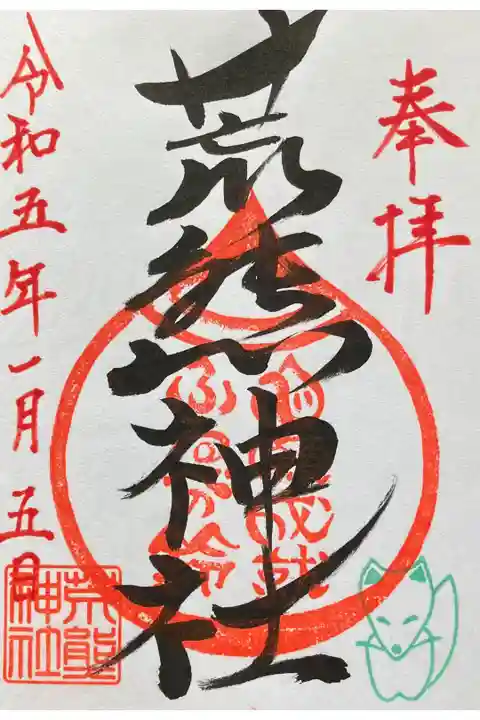 奉拝
荒熊神社
令和五年一月五日
荒熊
神社